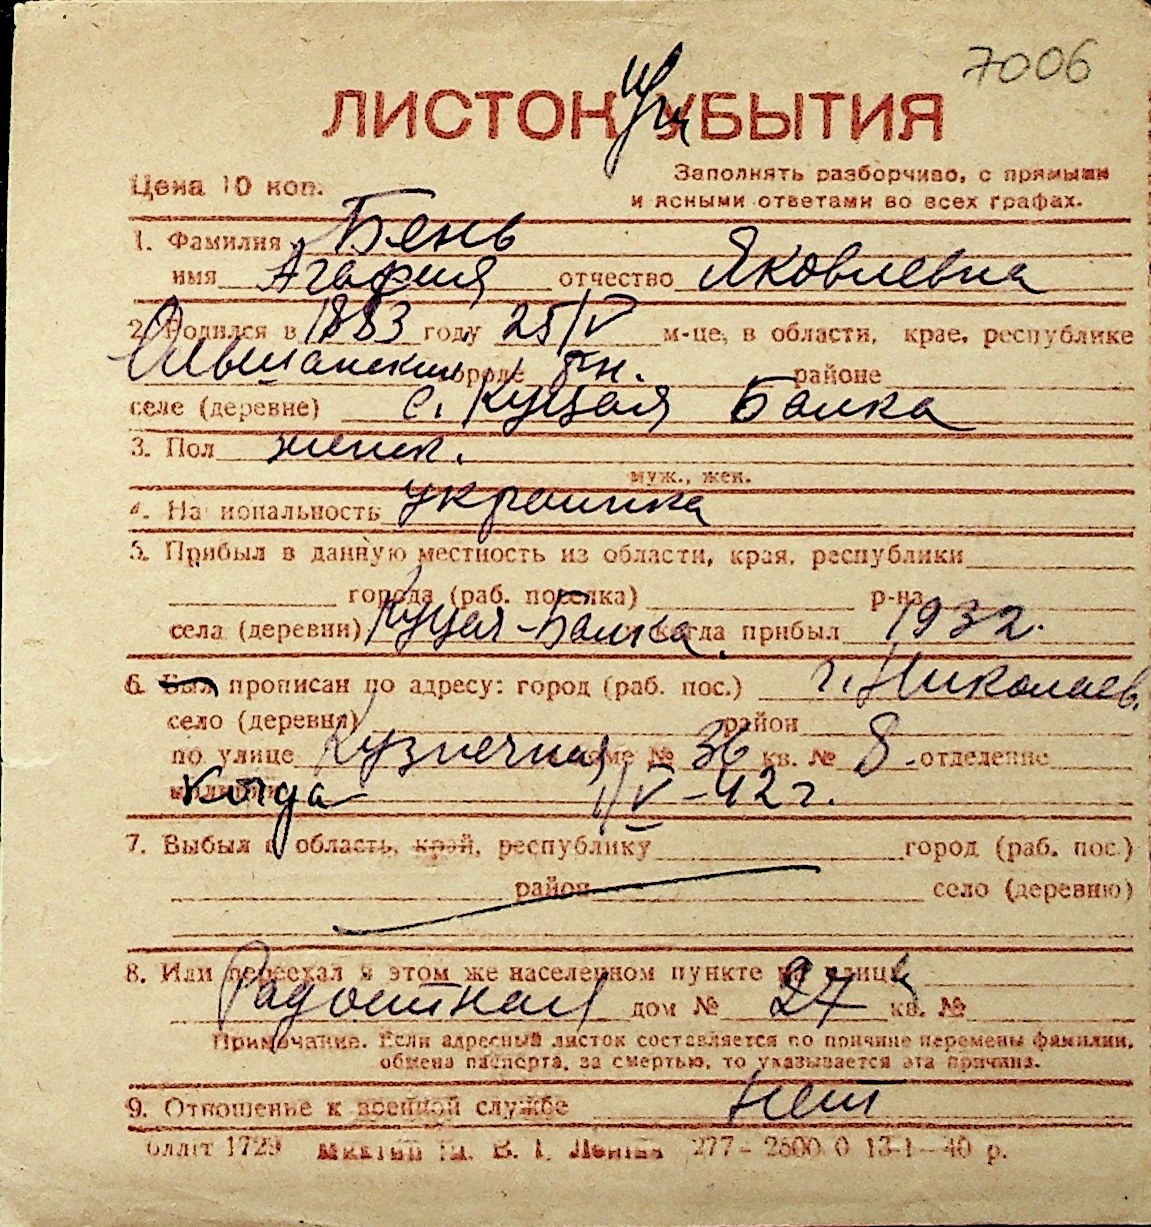 7006
ЛИСТОК УБЫТИЯ
Цена 10 коп.
Заполнять разборчиво, с прямыми
и ясными ответами во всех графах.
1. Фамилия Бень
имя Агафия отчество Яковлевна
2. Родился в 1883 году 25/V м-це, в области, крае, республике
Ольшанский городе рн. районе
селе (деревне) с. Куцая Балка
3. Пол женск.
муж., жен.
4. Национальность украинка
5. Прибыл в данную местность из области, края, республики
города (раб. поселка) р-на
села (деревни) Куцая-Балка когда прибыл 1932.
6. Был прописан по адресу: город (раб. пос.) г. Николаев.
село (деревня) район
по улице Кузнечная доме № 36 кв. № 8. отделение
милиции Когда 1/V-42 г.
7. Выбыл в область, край, республику город (раб. пос.)
район село (деревню)
8. Или переехал в этом же населенном пункте на улицу
Радостная дом № 27 кв. №
Примечание. Если адресный листок составляется по причине перемены фамилии,
обмена паспорта, за смертью, то указывается эта причина.
9. Отношенье к военной службе нет
1729 В. І. Леніна 277-2600 0 13-1-40 р.